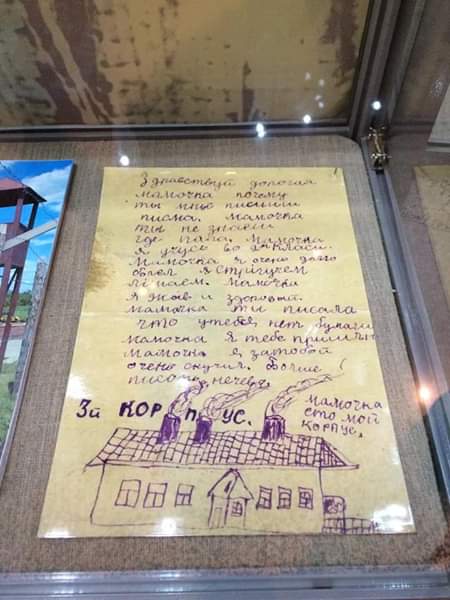 Здравствуй дорогая
мамочка почему
ты мнье пишиш
писма. Мамочка
ты не знаеш
где папа. Мамочка
я учусь во 2м класи.
Мамочка я очень
я стригучем
Мамочка
я жив и здоровий.
мамочка ти писала
что утебя нет бумаги
мамочка я тебе пришлю
мамочка я затобой
очень скучил. Болше
писать нечево!
3й КОРПУС.
Мамочка
ето мой
корпус.